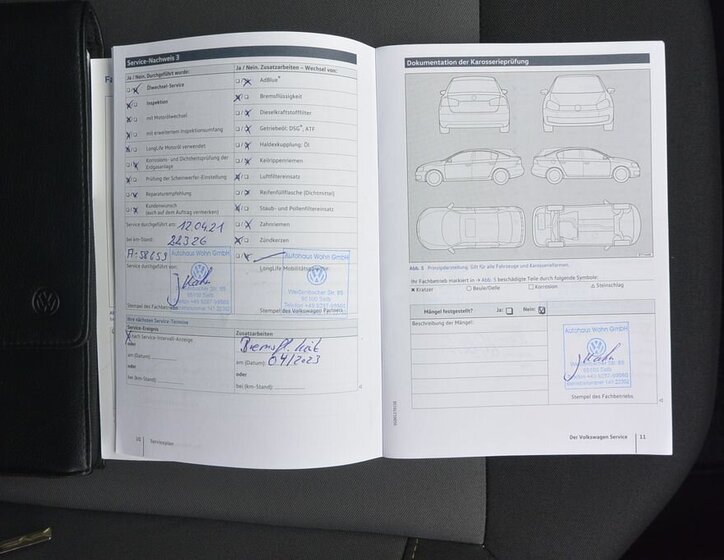 Service-Nachweis 3
Ja / Nein. Durchgeführt wurde:
Ölwechsel-Service
Inspektion
mit Motorölwechsel
mit erweitertem Inspektionsumfang
LongLife Motoröl verwendet
Korrosions- und Dichtheitsprüfung der
Erdgasanlage
Prüfung der Scheinwerfer-Einstellung
Reparaturempfehlung
Kundenwunsch
(auch auf dem Auftrag vermerken)
Service durchgeführt am: 12.04.21
bei km-Stand: 22326
Autohaus Wohn GmbH
Service durchgeführt von:
Stempel des Fachbetriebs
Ja / Nein. Zusatzarbeiten – Wechsel von:
AdBlue®
Bremsflüssigkeit
Dieselkraftstofffilter
Getriebeöl: DSG®, ATF
Haldexkupplung: Öl
Keilrippenriemen
Luftfiltereinsatz
Reifenfüllflasche (Dichtmittel)
Staub- und Pollenfiltereinsatz
Zahnriemen
Zündkerzen
Autohaus Wohn GmbH
Stempel des Volkswagen Partners
Ihre nächsten Service-Termine
Service-Ereignis
nach Service-Intervall-Anzeige
oder
am (Datum):
oder
bei (km-Stand):
Zusatzarbeiten
am (Datum): 04/2023
oder
bei (km-Stand):
10
Serviceplan
Dokumentation der Karosserieprüfung
Abb. 5 Prinzipdarstellung: Gilt für alle Fahrzeuge und Karosserieformen.
Ihr Fachbetrieb markiert in → Abb. 5 beschädigte Teile durch folgende Symbole:
× Kratzer
□ Beule/Delle
○ Korrosion
△ Steinschlag
Mängel festgestellt? Ja: Nein:
Beschreibung der Mängel:
Autohaus Wohn GmbH
Stempel des Fachbetriebs
Der Volkswagen Service
11